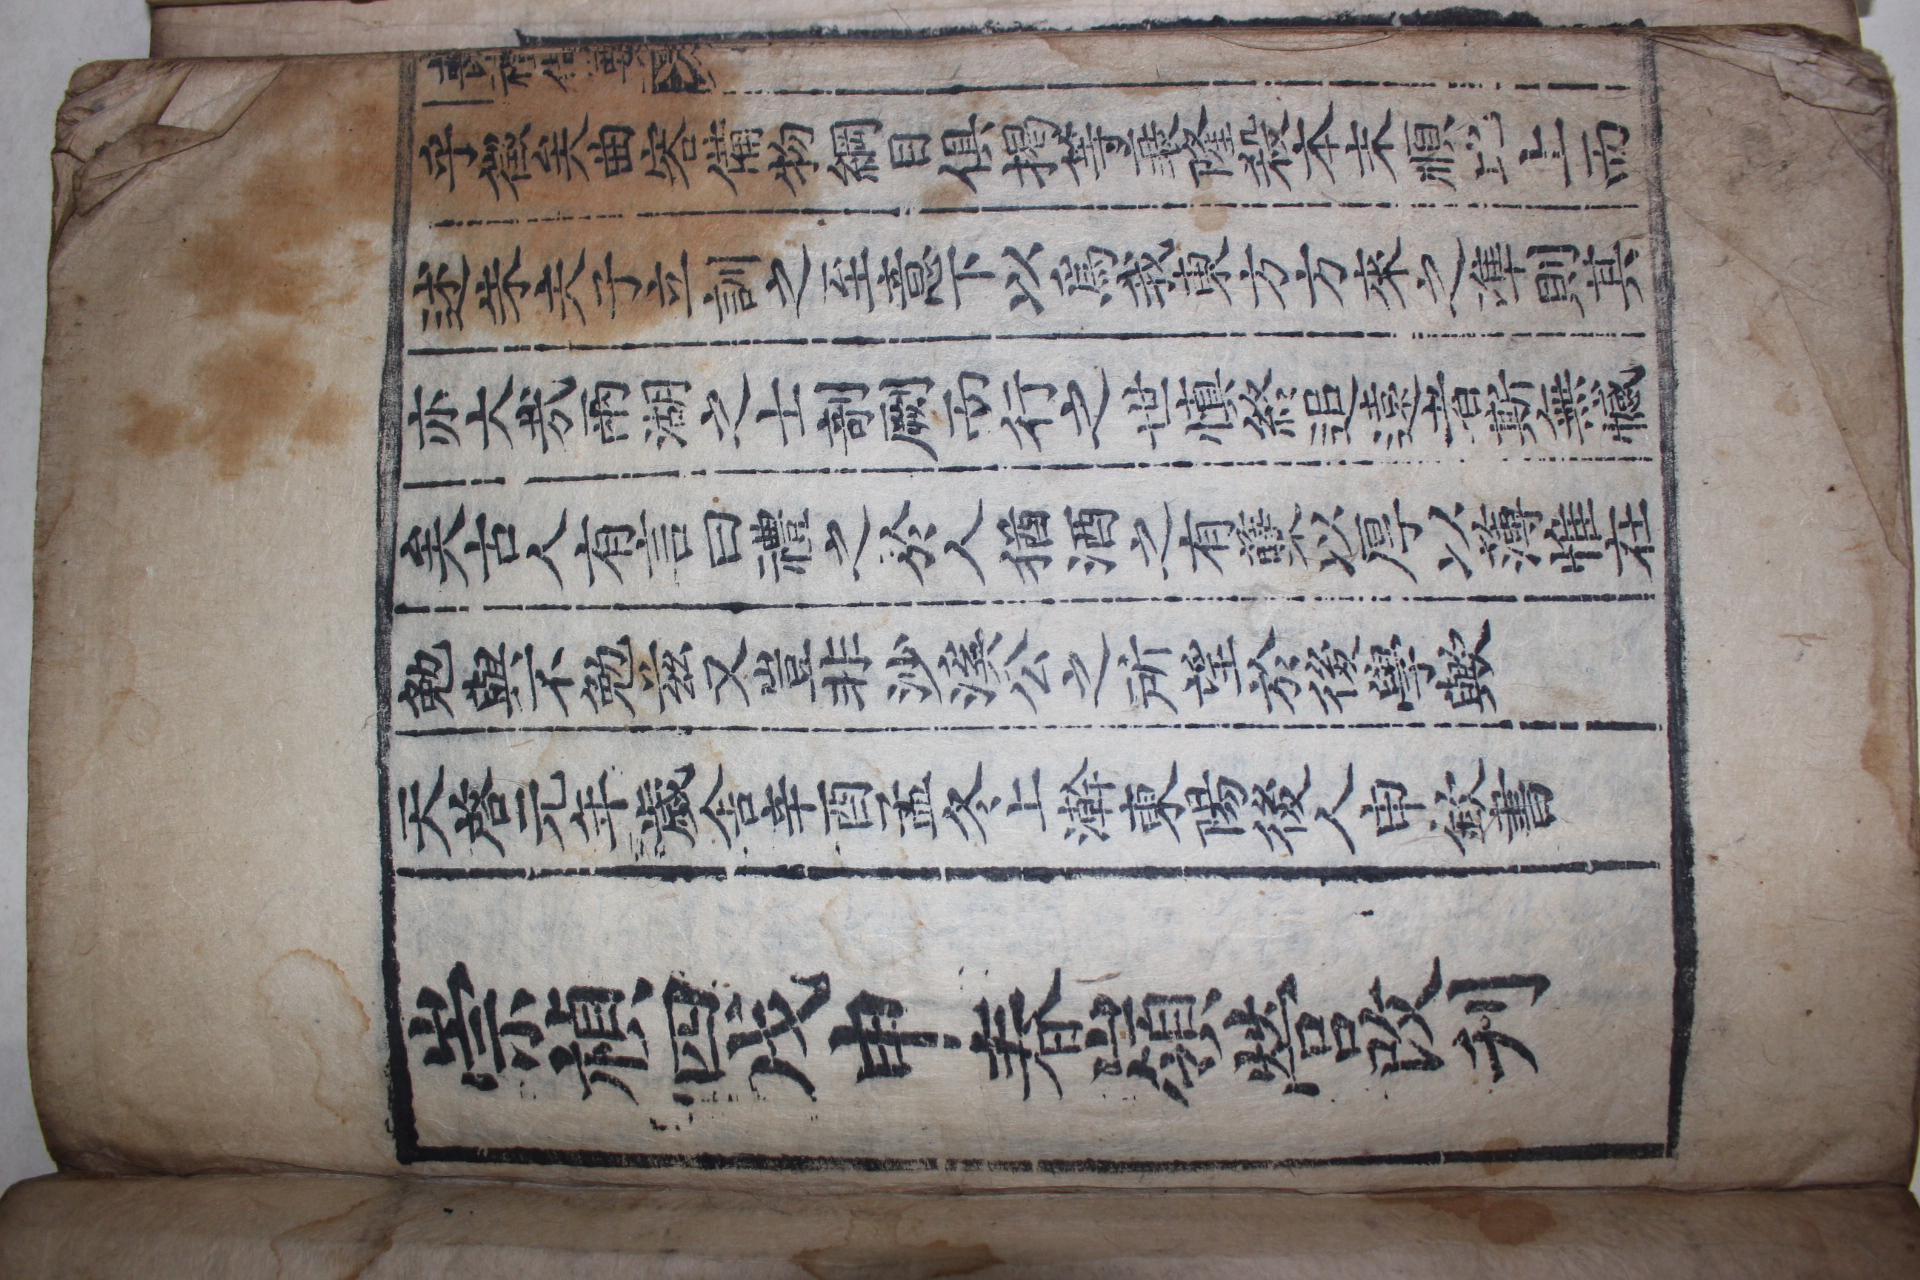 喪禮備要
乎徵矣曲容備物綱目俱揭等衰隆殺本末順比上而
述朱夫子立訓之至意下以爲我東方方來之準則其
亦大哉兩湖之士剞劂而行之世愼終追遠者斯無憾
矣古人有言曰禮之於人猶酒之有蘖以厚以薄惟在
勉與不勉兹又豈非沙溪公之所望於後學歟
天啓元年歲舍辛酉孟冬上澣東陽後人申欽書
崇禎四戊申春嶺營改刊